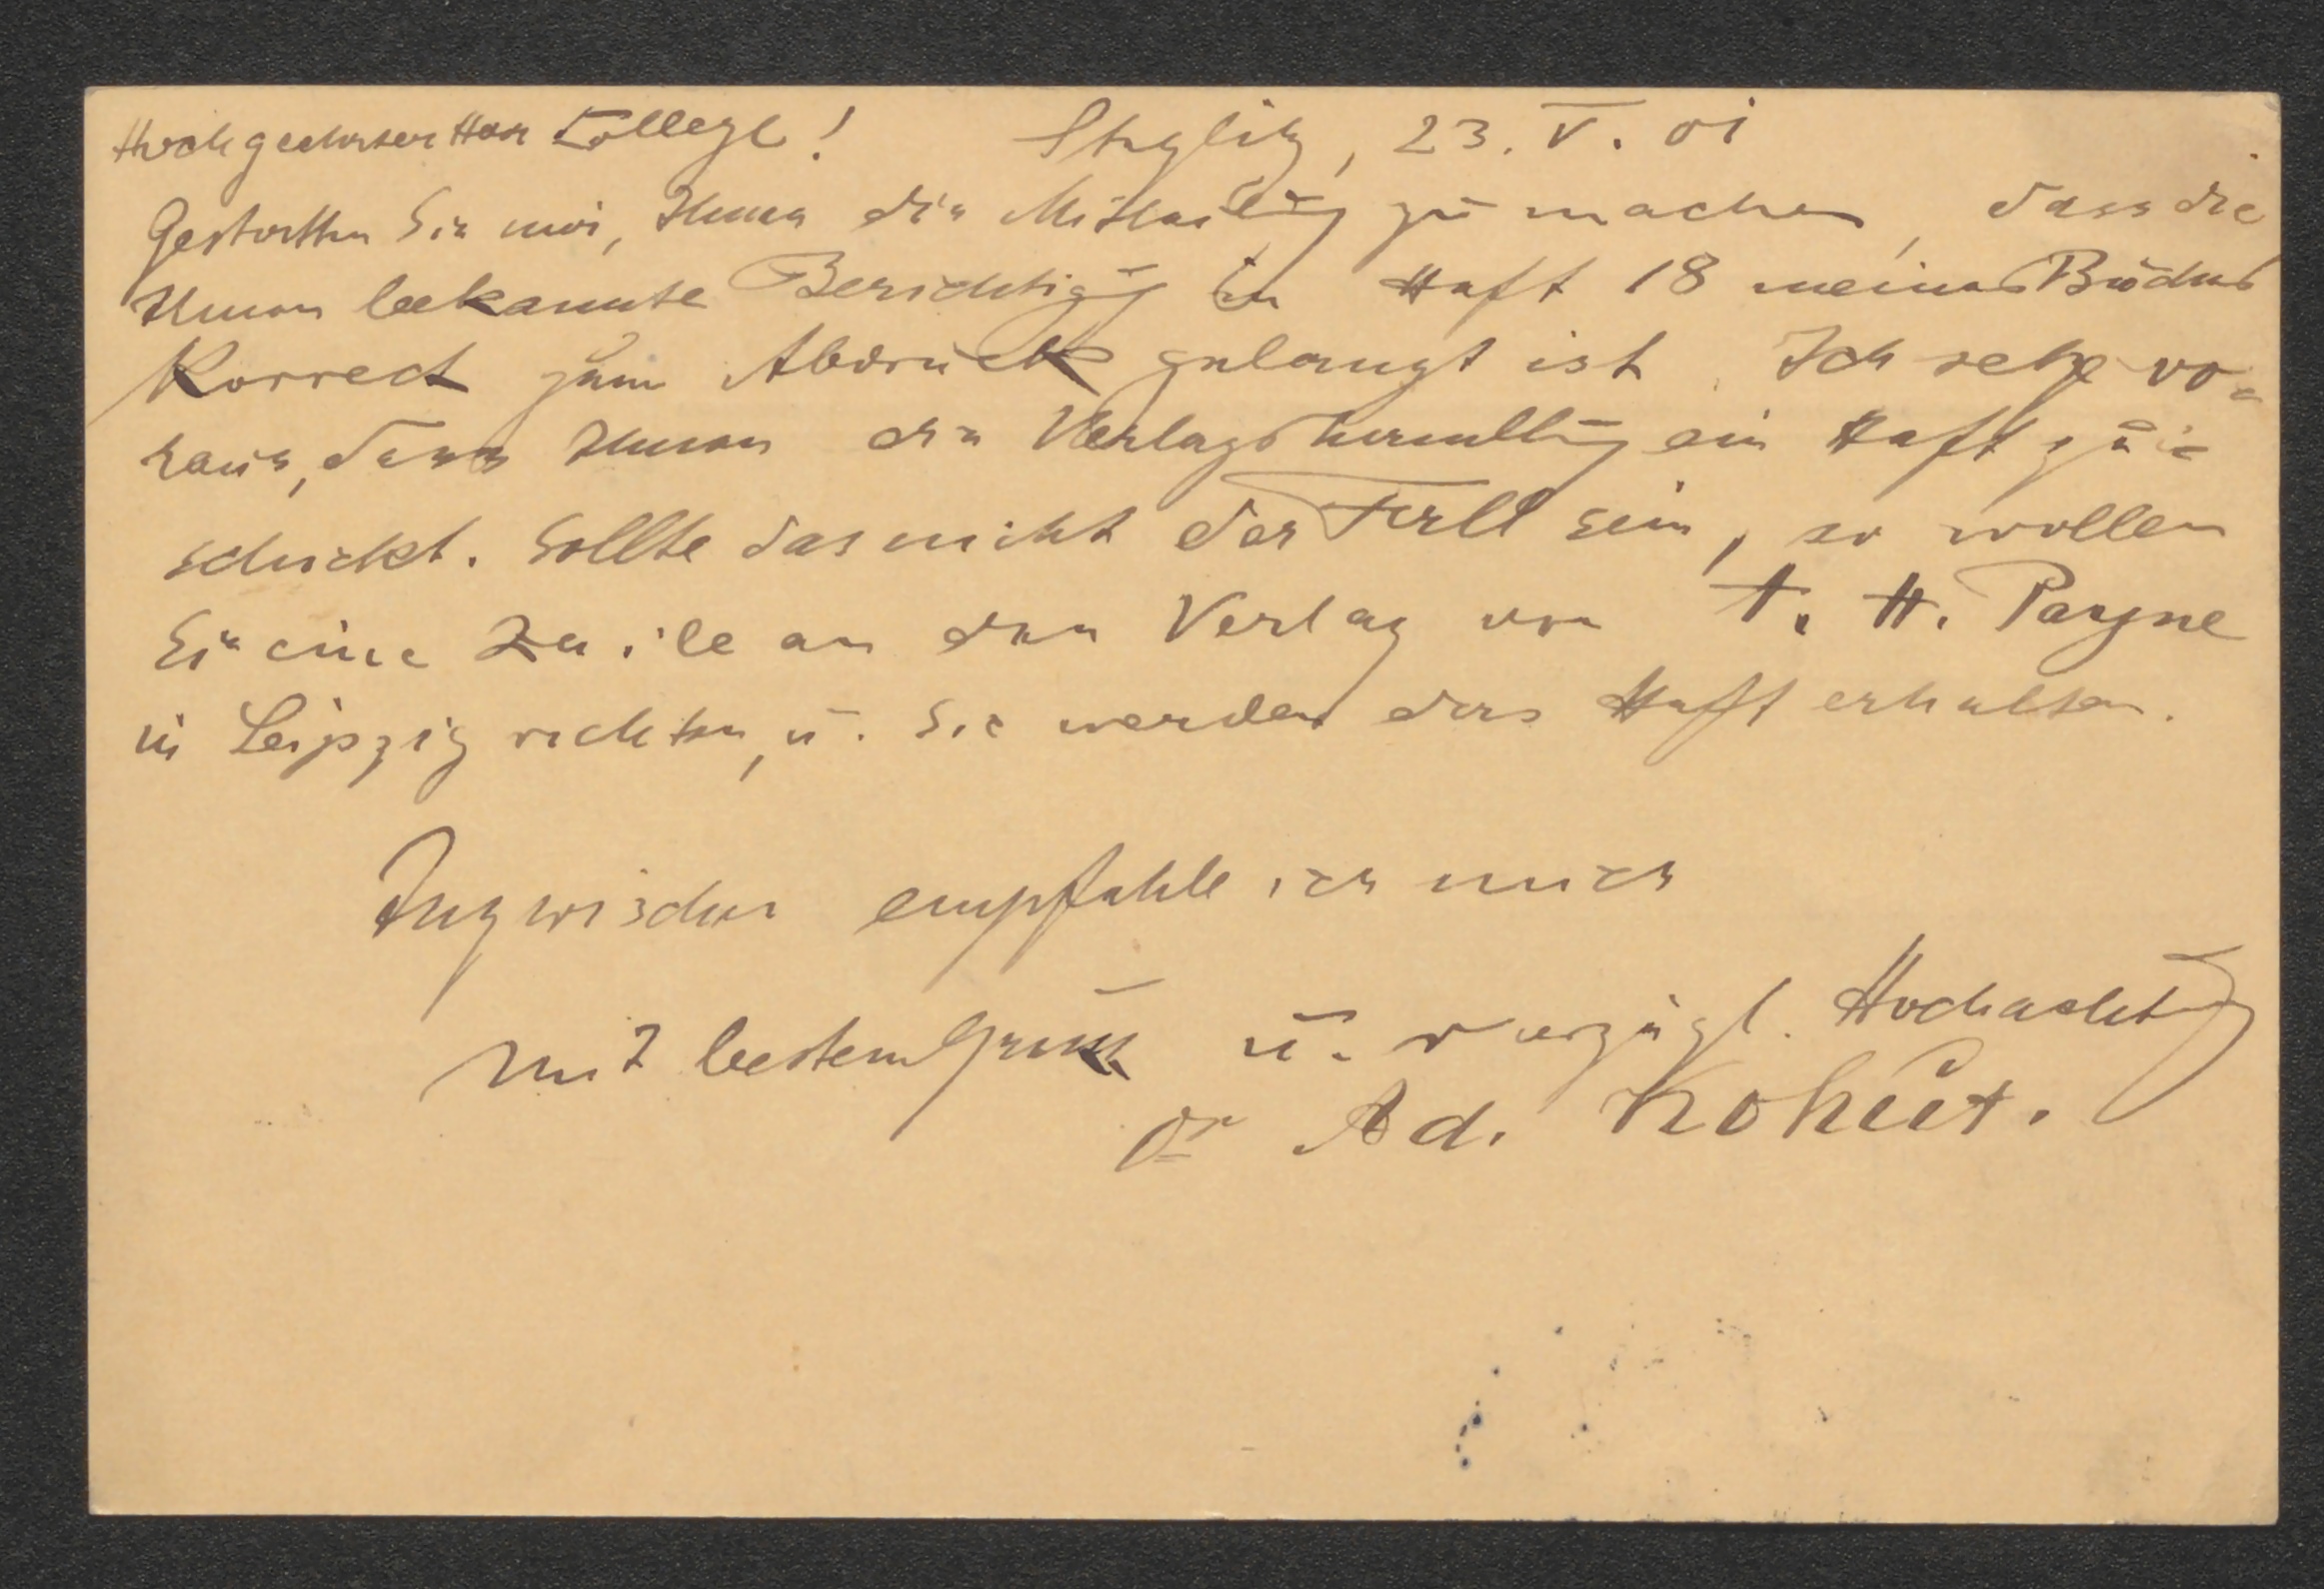 Hochgeehrter Herr College! Steglitz, 23. V. 01
Gestatten Sie mir, Ihnen die Mitteilung zu machen, dass die
Ihnen bekannte Berichtigung in Heft 18 meines Buches
Korrect zum Abdruck gelangt ist. Ich setze vo-
raus, dass Ihnen die Verlagshandlung ein Heft zu-
schickt. Sollte das nicht der Fall sein, so wollen
Sie eine Zeile an den Verlag von A. H. Payne
in Leipzig richten, u. Sie werden das Heft erhalten.
Inzwischen empfehle ich mich
mit bestem Gruss u. vorzügl. Hochachtung
Dr Ad. Kohut.